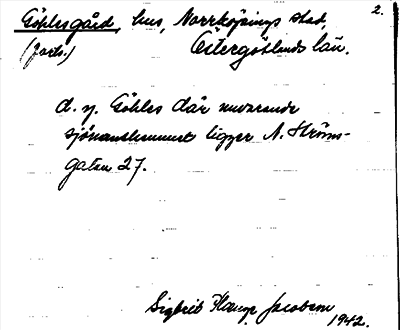 Göhlesgård, hus, Norrköpings stad, 2.
(forts.) Östergötlands län.
d. y. Göhles där nuvarande
sjömanshemmet ligger N. Ströms-
gatan 27.
Sigbrit Plange Jacobson
1942.